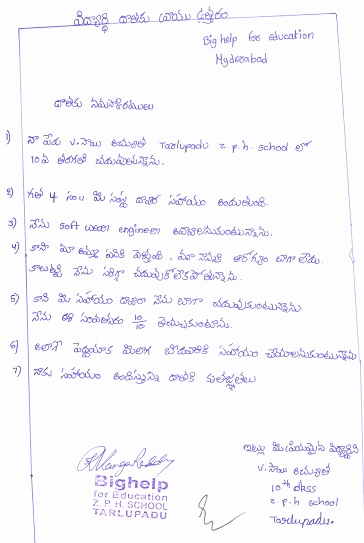 విద్యార్థి దాతకు వ్రాయు ఉత్తరం
Big help for education
Hyderabad
దాతకు నమస్కారములు
1) నా పేరు v. సాయి Tarlupadu z.p.h. school లో
10వ తరగతి చదువుతున్నాను.
2) గత 4 సం॥ మీ సంస్థ ద్వారా సహాయం అందుతుంది.
3) నేను soft wear engineer అవ్వాలనుకుంటున్నాను.
4) కాని మా అమ్మ పనికి వెళ్తుంది, మా నాన్నకి ఆరోగ్యం బాగా లేదు.
కాబట్టి నేను సరిగ్గా చదువుకోలేకపోతున్నాను.
5) కాని మీ సహాయం ద్వారా నేను బాగా చదువుకుంటున్నాను.
నేను ఈ సంవత్సరం 10/10 తెచ్చుకుంటాను.
6) అలాగే పెద్దయ్యాక మీలాగ పేదవారికి సహాయం చేయాలనుకుంటున్నాను
7) నాకు సహాయం అందిస్తున్న దాతకి కృతజ్ఞతలు
ఇట్లు మీ ప్రియమైన విద్యార్థిని
v. సాయి
10th class
z.p.h school
Tarlupadu.
Bighelp
for Education
Z. P. H. SCHOOL
TARLUPADU